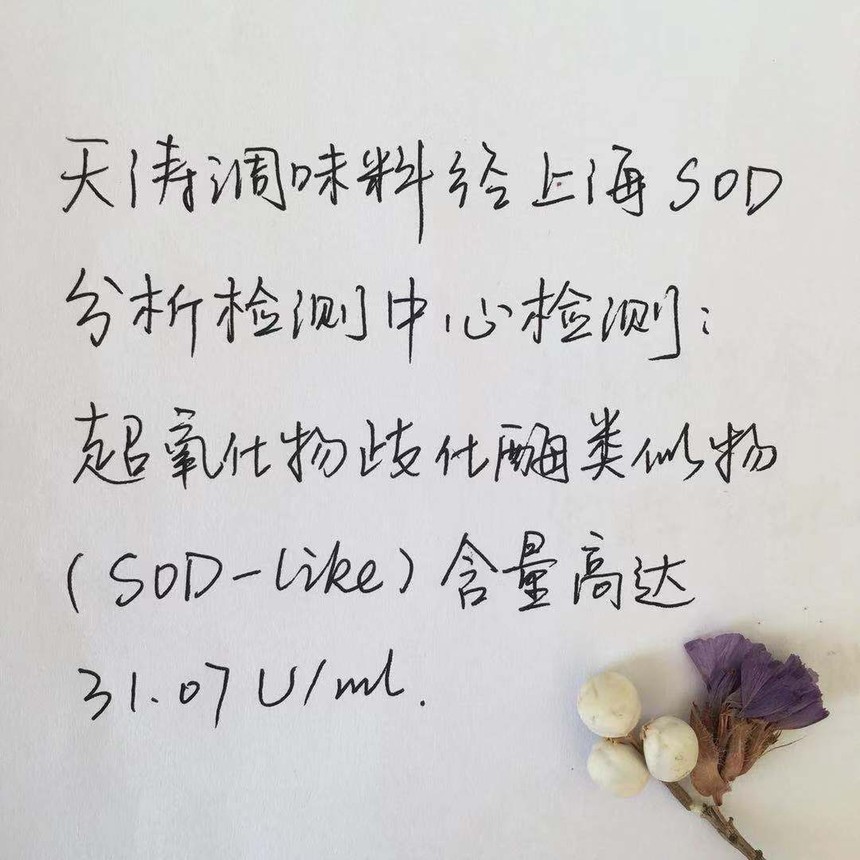 天涛调味料经上海SOD
分析检测中心检测:
超氧化物歧化酶类似物
(SOD-like)含量高达
31.07U/ml.